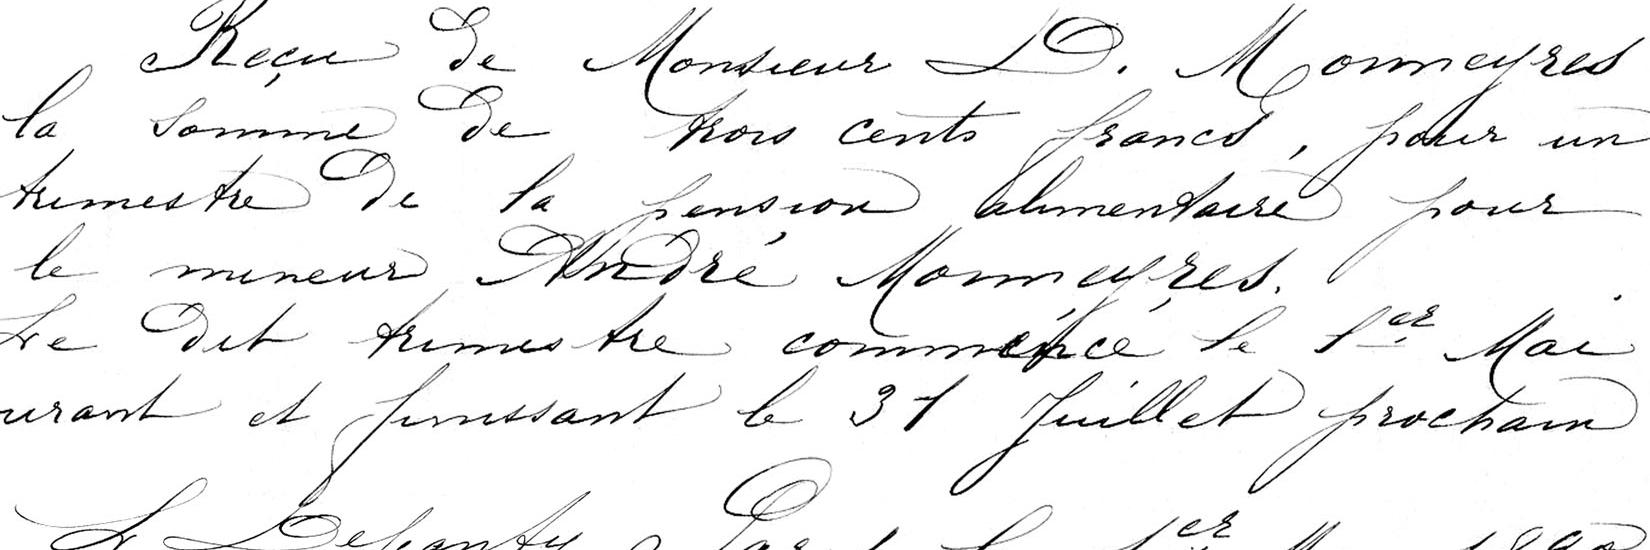 Reçu de Monsieur D. Monneyres
la somme de trois cents francs, pour un
trimestre de la pension alimentaire pour
le mineur André Monneyres.
Le dit trimestre commencé le 1er Mai
urant et finissant le 31 Juillet prochain
1er